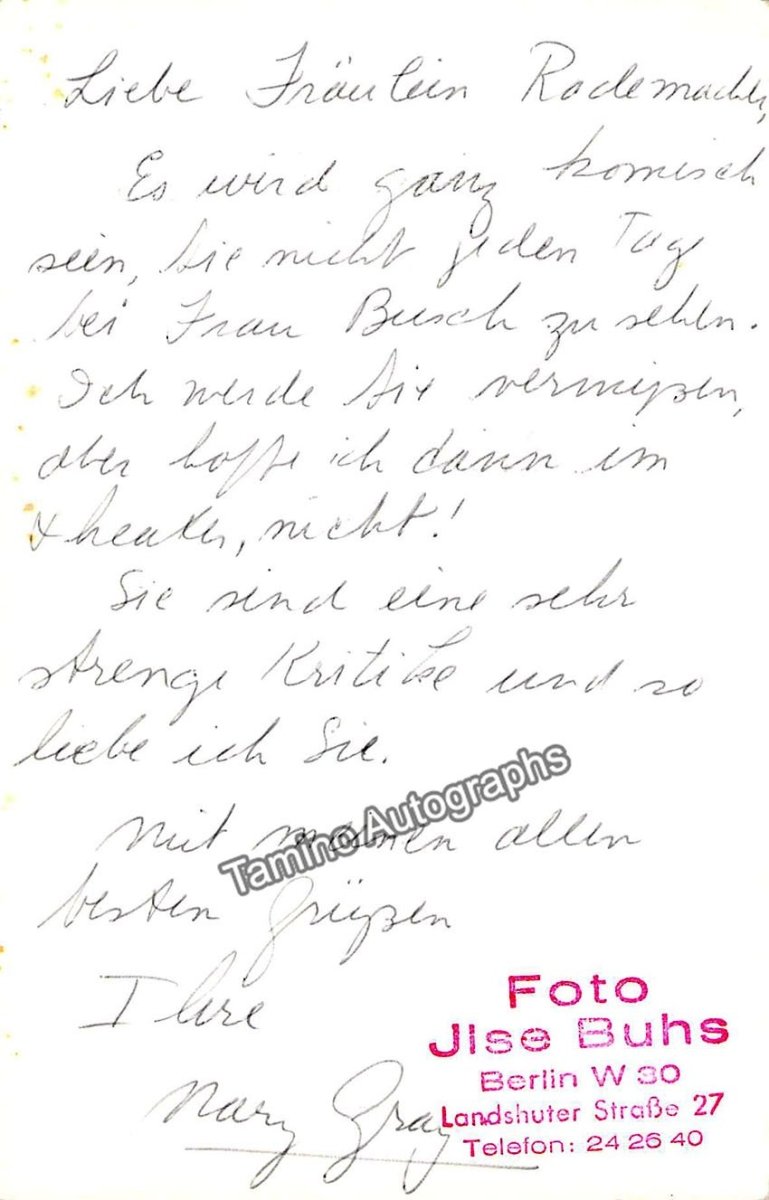 Liebe Fräulein Rademacher,
Es wird ganz komisch
sein, Sie nicht jeden Tage
bei Frau Busch zu sehen.
Ich werde Sie vermißen,
aber hoffe ich dann im
theater, nicht!
Sie sind eine sehr
strenge Kritike und so
liebe ich Sie.
Mit meinen allen
besten Grüßen
Ihre
Mary Gray
Tamino Autographs
Foto
Jlse Buhs
Berlin W 30
Landshuter Straße 27
Telefon: 24 26 40